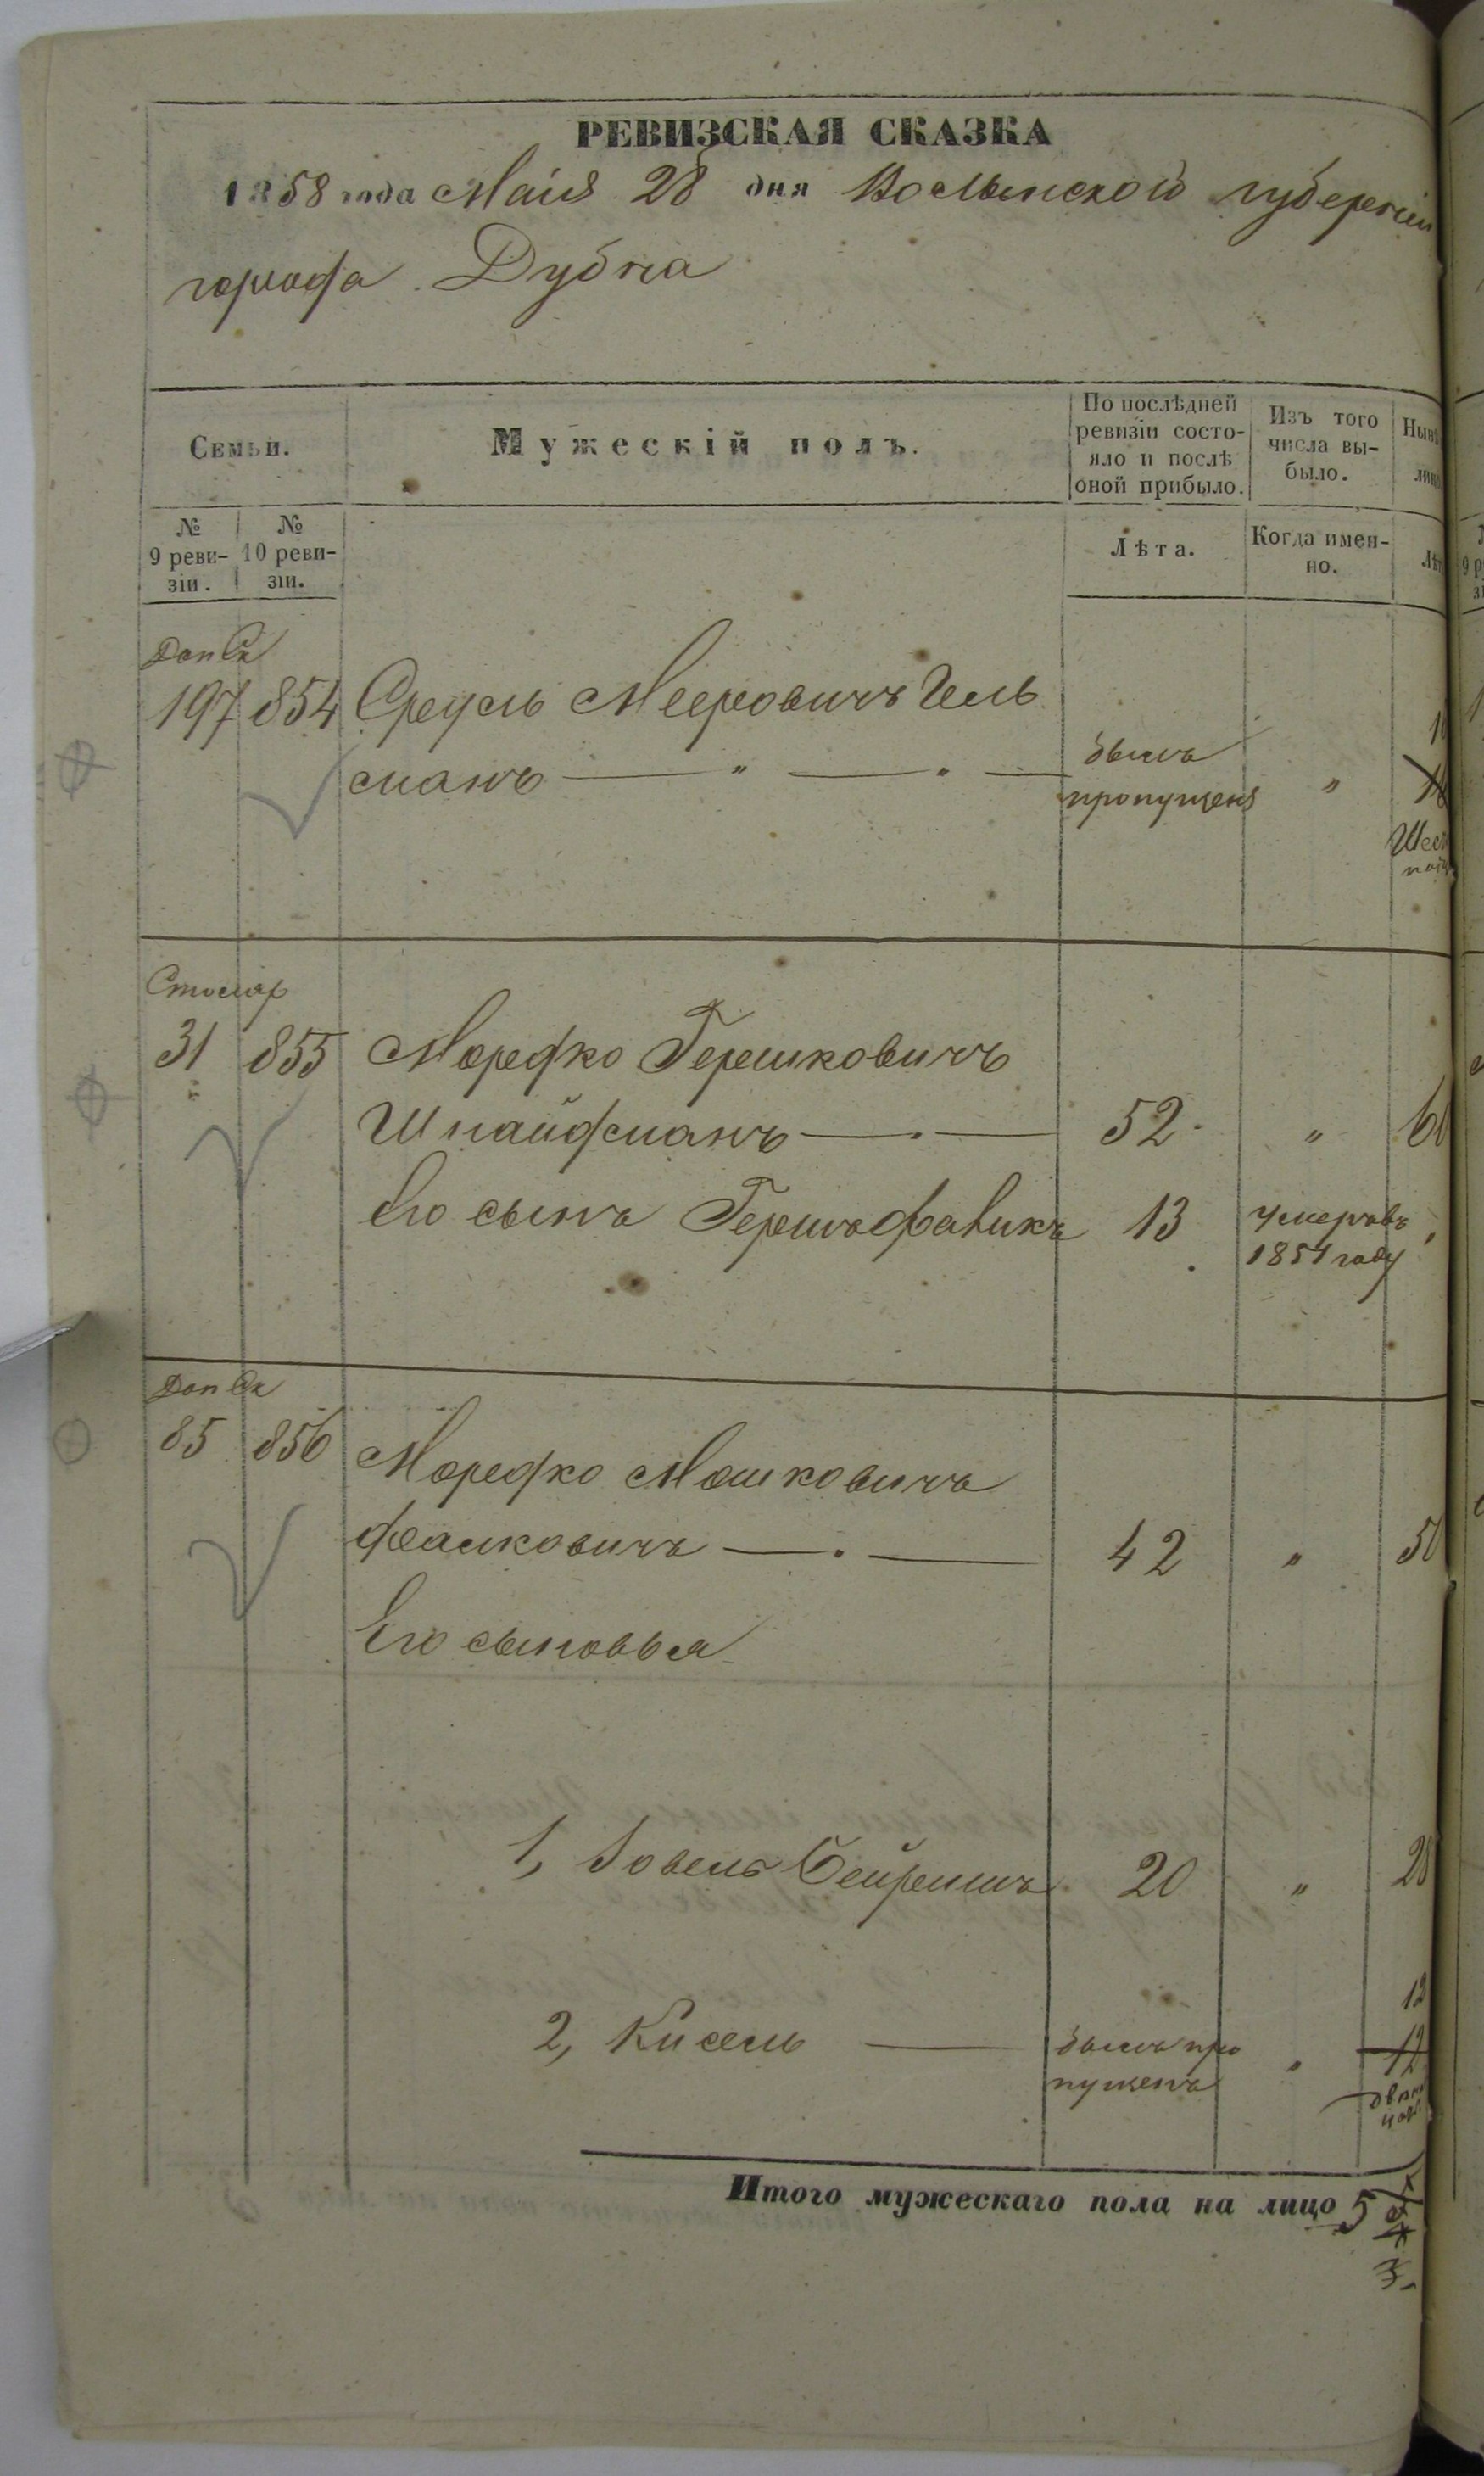 РЕВИЗСКАЯ СКАЗКА
1858 года Маія 28 дня Волынской губерніи
города Дубна
Семьи.
Мужескій полъ.
По послѣдней ревизіи состо-
яло и послѣ
оной прибыло.
Изъ того
числа вы-
было.
№
9 реви-
зіи.
№
10 реви-
зіи.
Лѣта.
Когда имен-
но.
Доп Ск
197 854 Сруль Мееровичъ Гель
манъ
былъ
пропущенъ "
31 855 Мордко Гершковичъ
Шнайдманъ 52 "
Его сынъ 13 умеръ въ
1851 году
Доп Ск
85 856 Мордко Мошковичъ
Фалковичъ 42 "
Его сыновья
1, 20 "
2, Кисель былъ про
пущенъ
12
Итого мужескаго пола на лицо 5